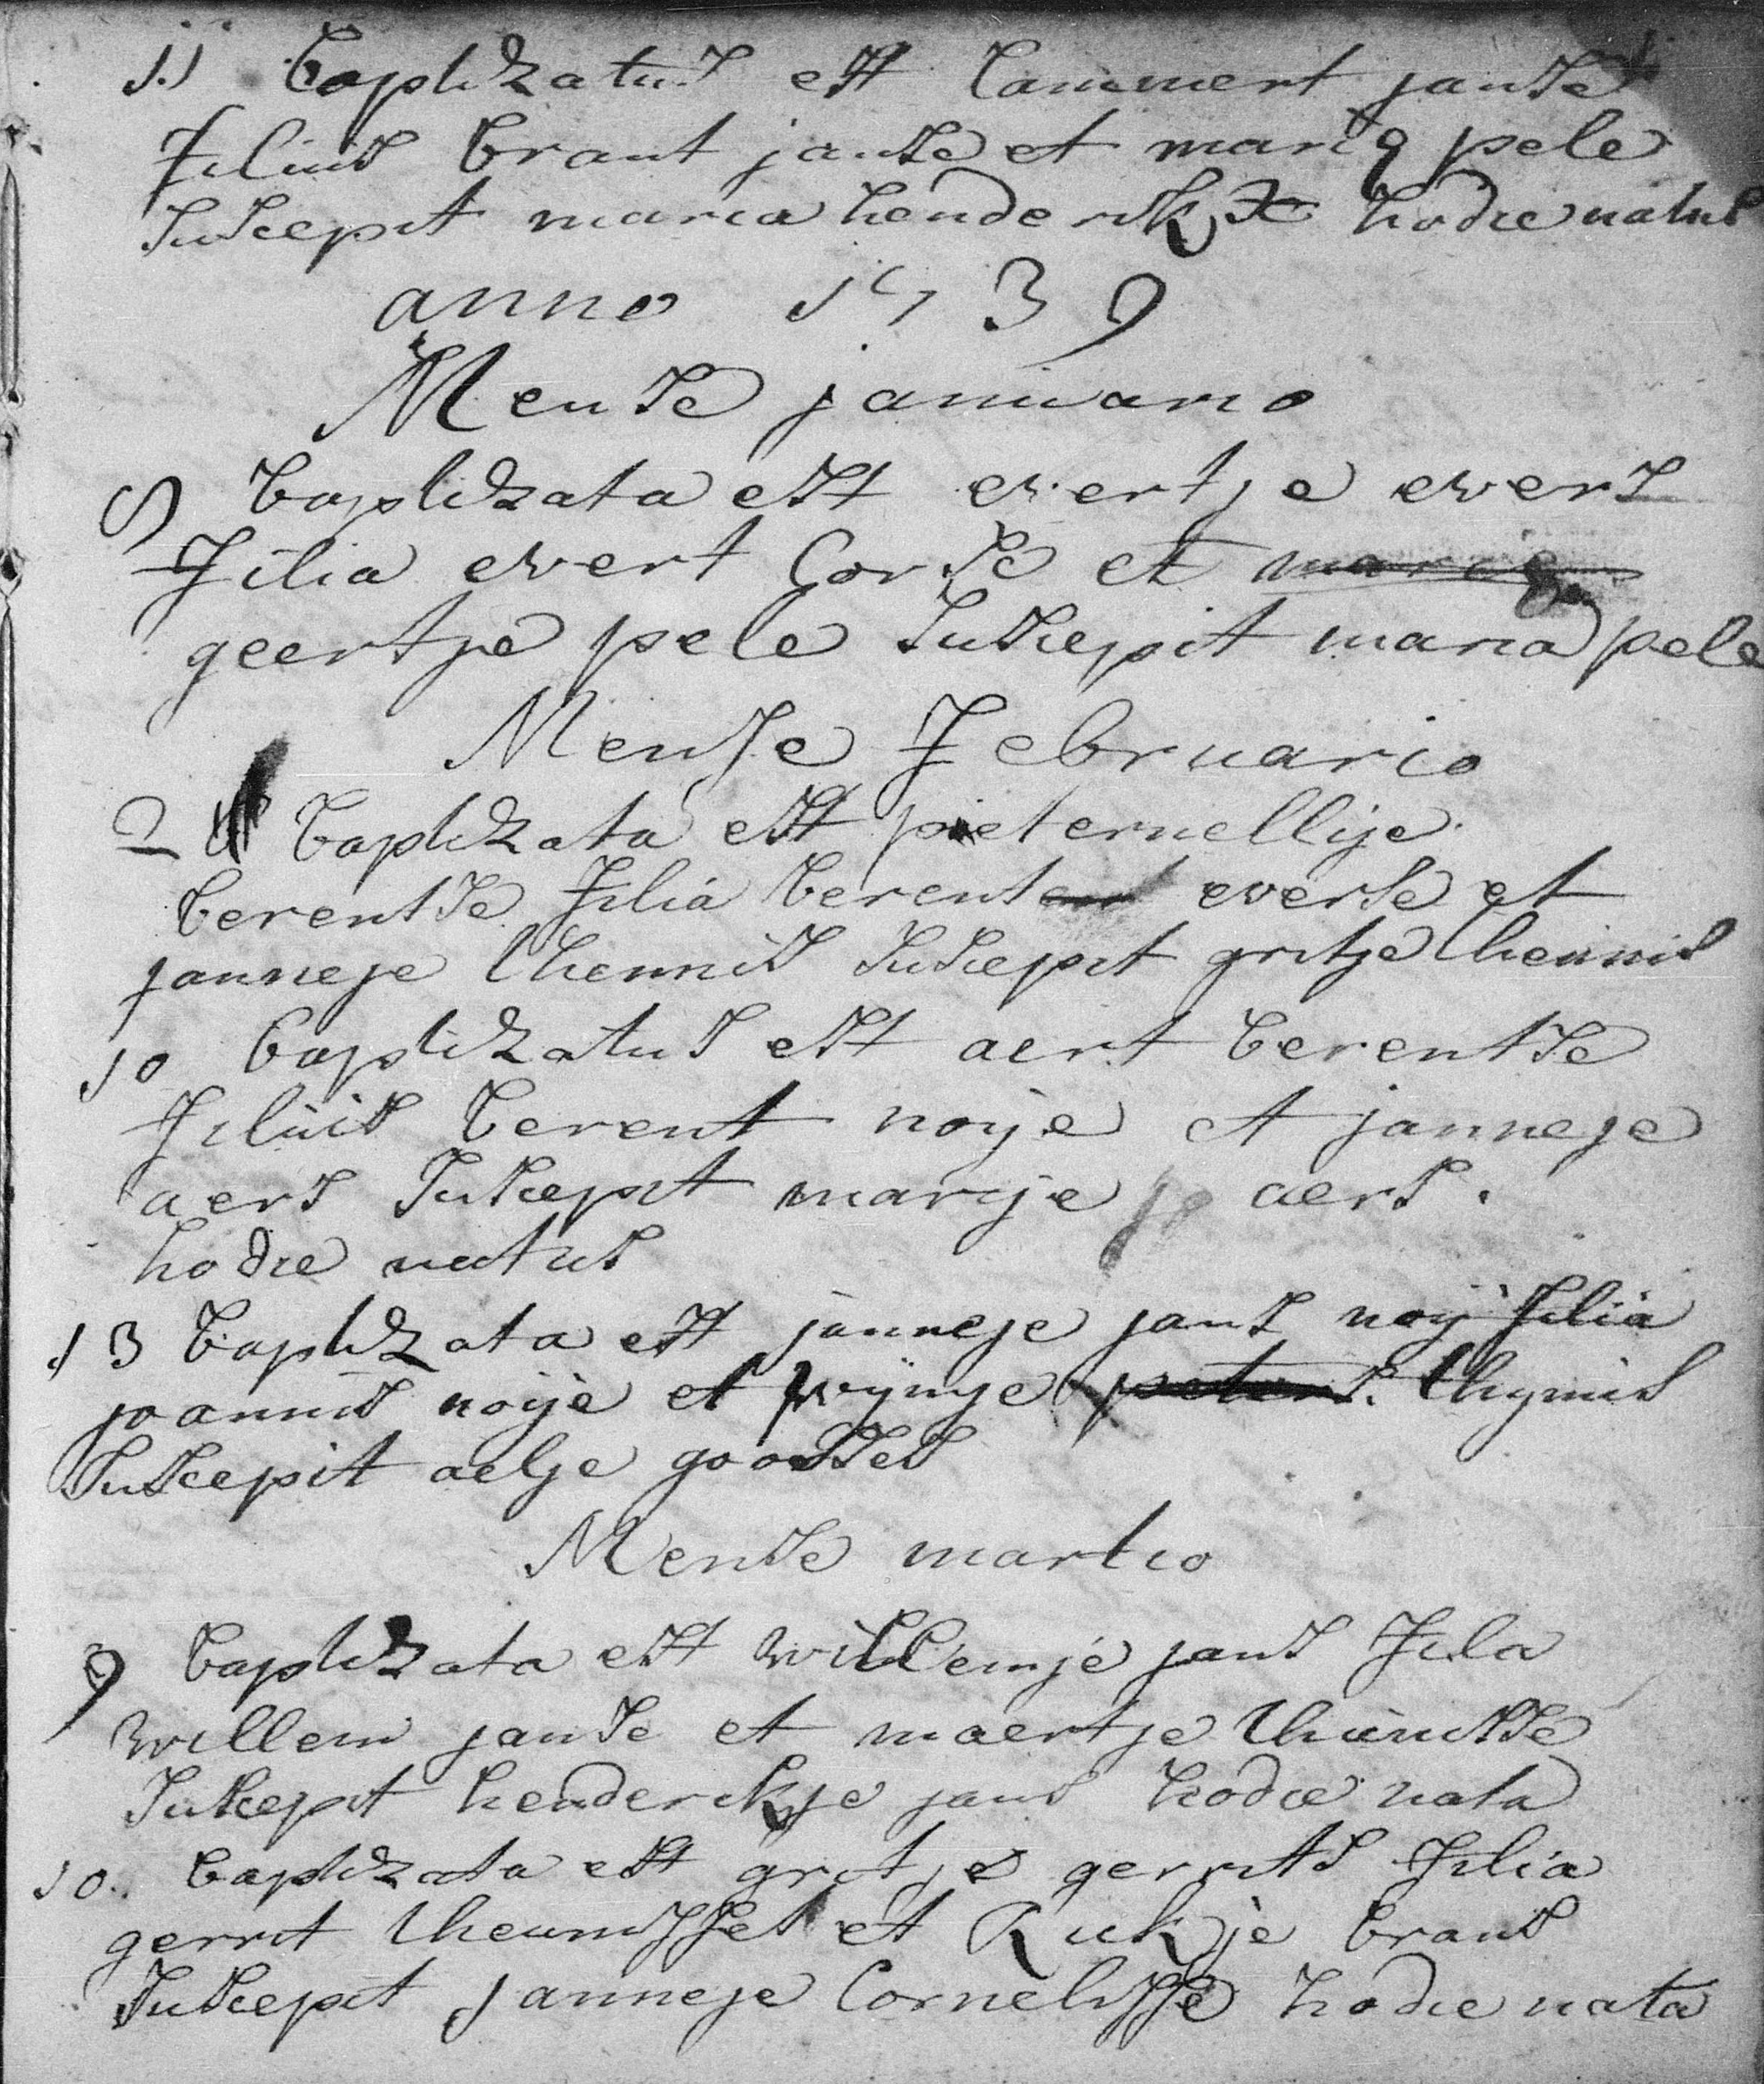 11 baptizatus est Lammert janse
filius brant janse et marig pele
suscepit maria henderikx hodie natus
anno 1739
Mense januario
5 baptizata est evertje evers
filia evert Corse et marig
geertje pele suscepit maria pele
Mense Februario
2 baptizata est pieternellije
berentse filia berent everse et
janneje thennis suscepit gritje thennis
10 baptizatus est aert berentse
filius berent noije et janneje
aers suscepit marije aers.
hodie natus
13 baptizata est janneje jans noij filia
joannis noije et wijnje peters. thymis
suscepit aelje goosses
Mense martio
9 baptizata est willemje jans fila
willem janse et maertje
suscepit henderickje jans hodie nata
10. baptizata est gritje gerrits filia
gerrit theunisses et Rickje brans
suscepit janneje Cornelisse hodie nata